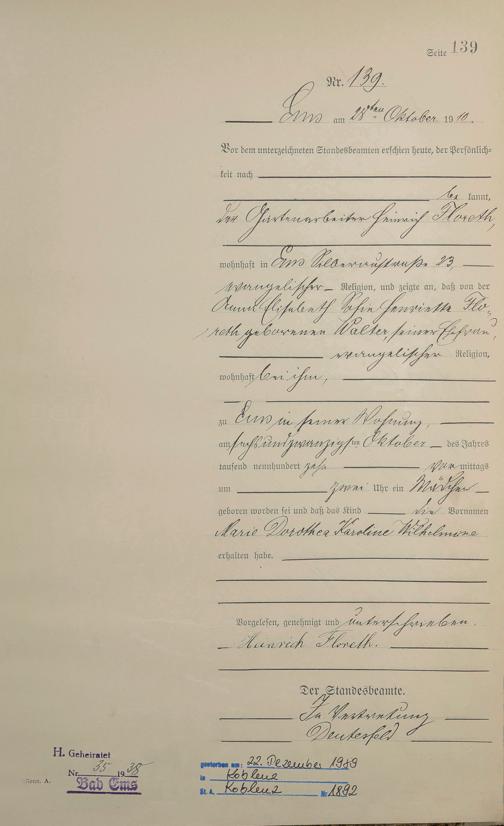 Seite 139
Nr. 139.
Ems am 28ten Oktober 1910.
Vor dem unterzeichneten Standesbeamten erschien heute, der Persönlich-
keit nach
be kannt,
der Gartenarbeiter Heinrich Floreth,
wohnhaft in Ems Silberaustraße 23,
evangelischer Religion, und zeigte an, daß von der
Anna Elisabeth Sofie Henriette Flo-
reth geborenen Walter, seiner Ehefrau,
evangelischer Religion,
wohnhaft bei ihm,
zu Ems in seiner Wohnung,
am sechsundzwanzigsten Oktober des Jahres
tausend neunhundert zehn vor mittags
um zwei Uhr ein Mädchen
geboren worden sei und daß das Kind die Vornamen
Marie Dorothea Karoline Wilhelmine
erhalten habe.
Vorgelesen, genehmigt und unterschrieben.
Heinrich Floreth.
Der Standesbeamte.
In Vertretung
H. Geheiratet
Nr. 35 1938
Bad Ems
A.
gestorben am: 22. Dezember 1989
in Koblenz
St. A. Koblenz Nr 1892